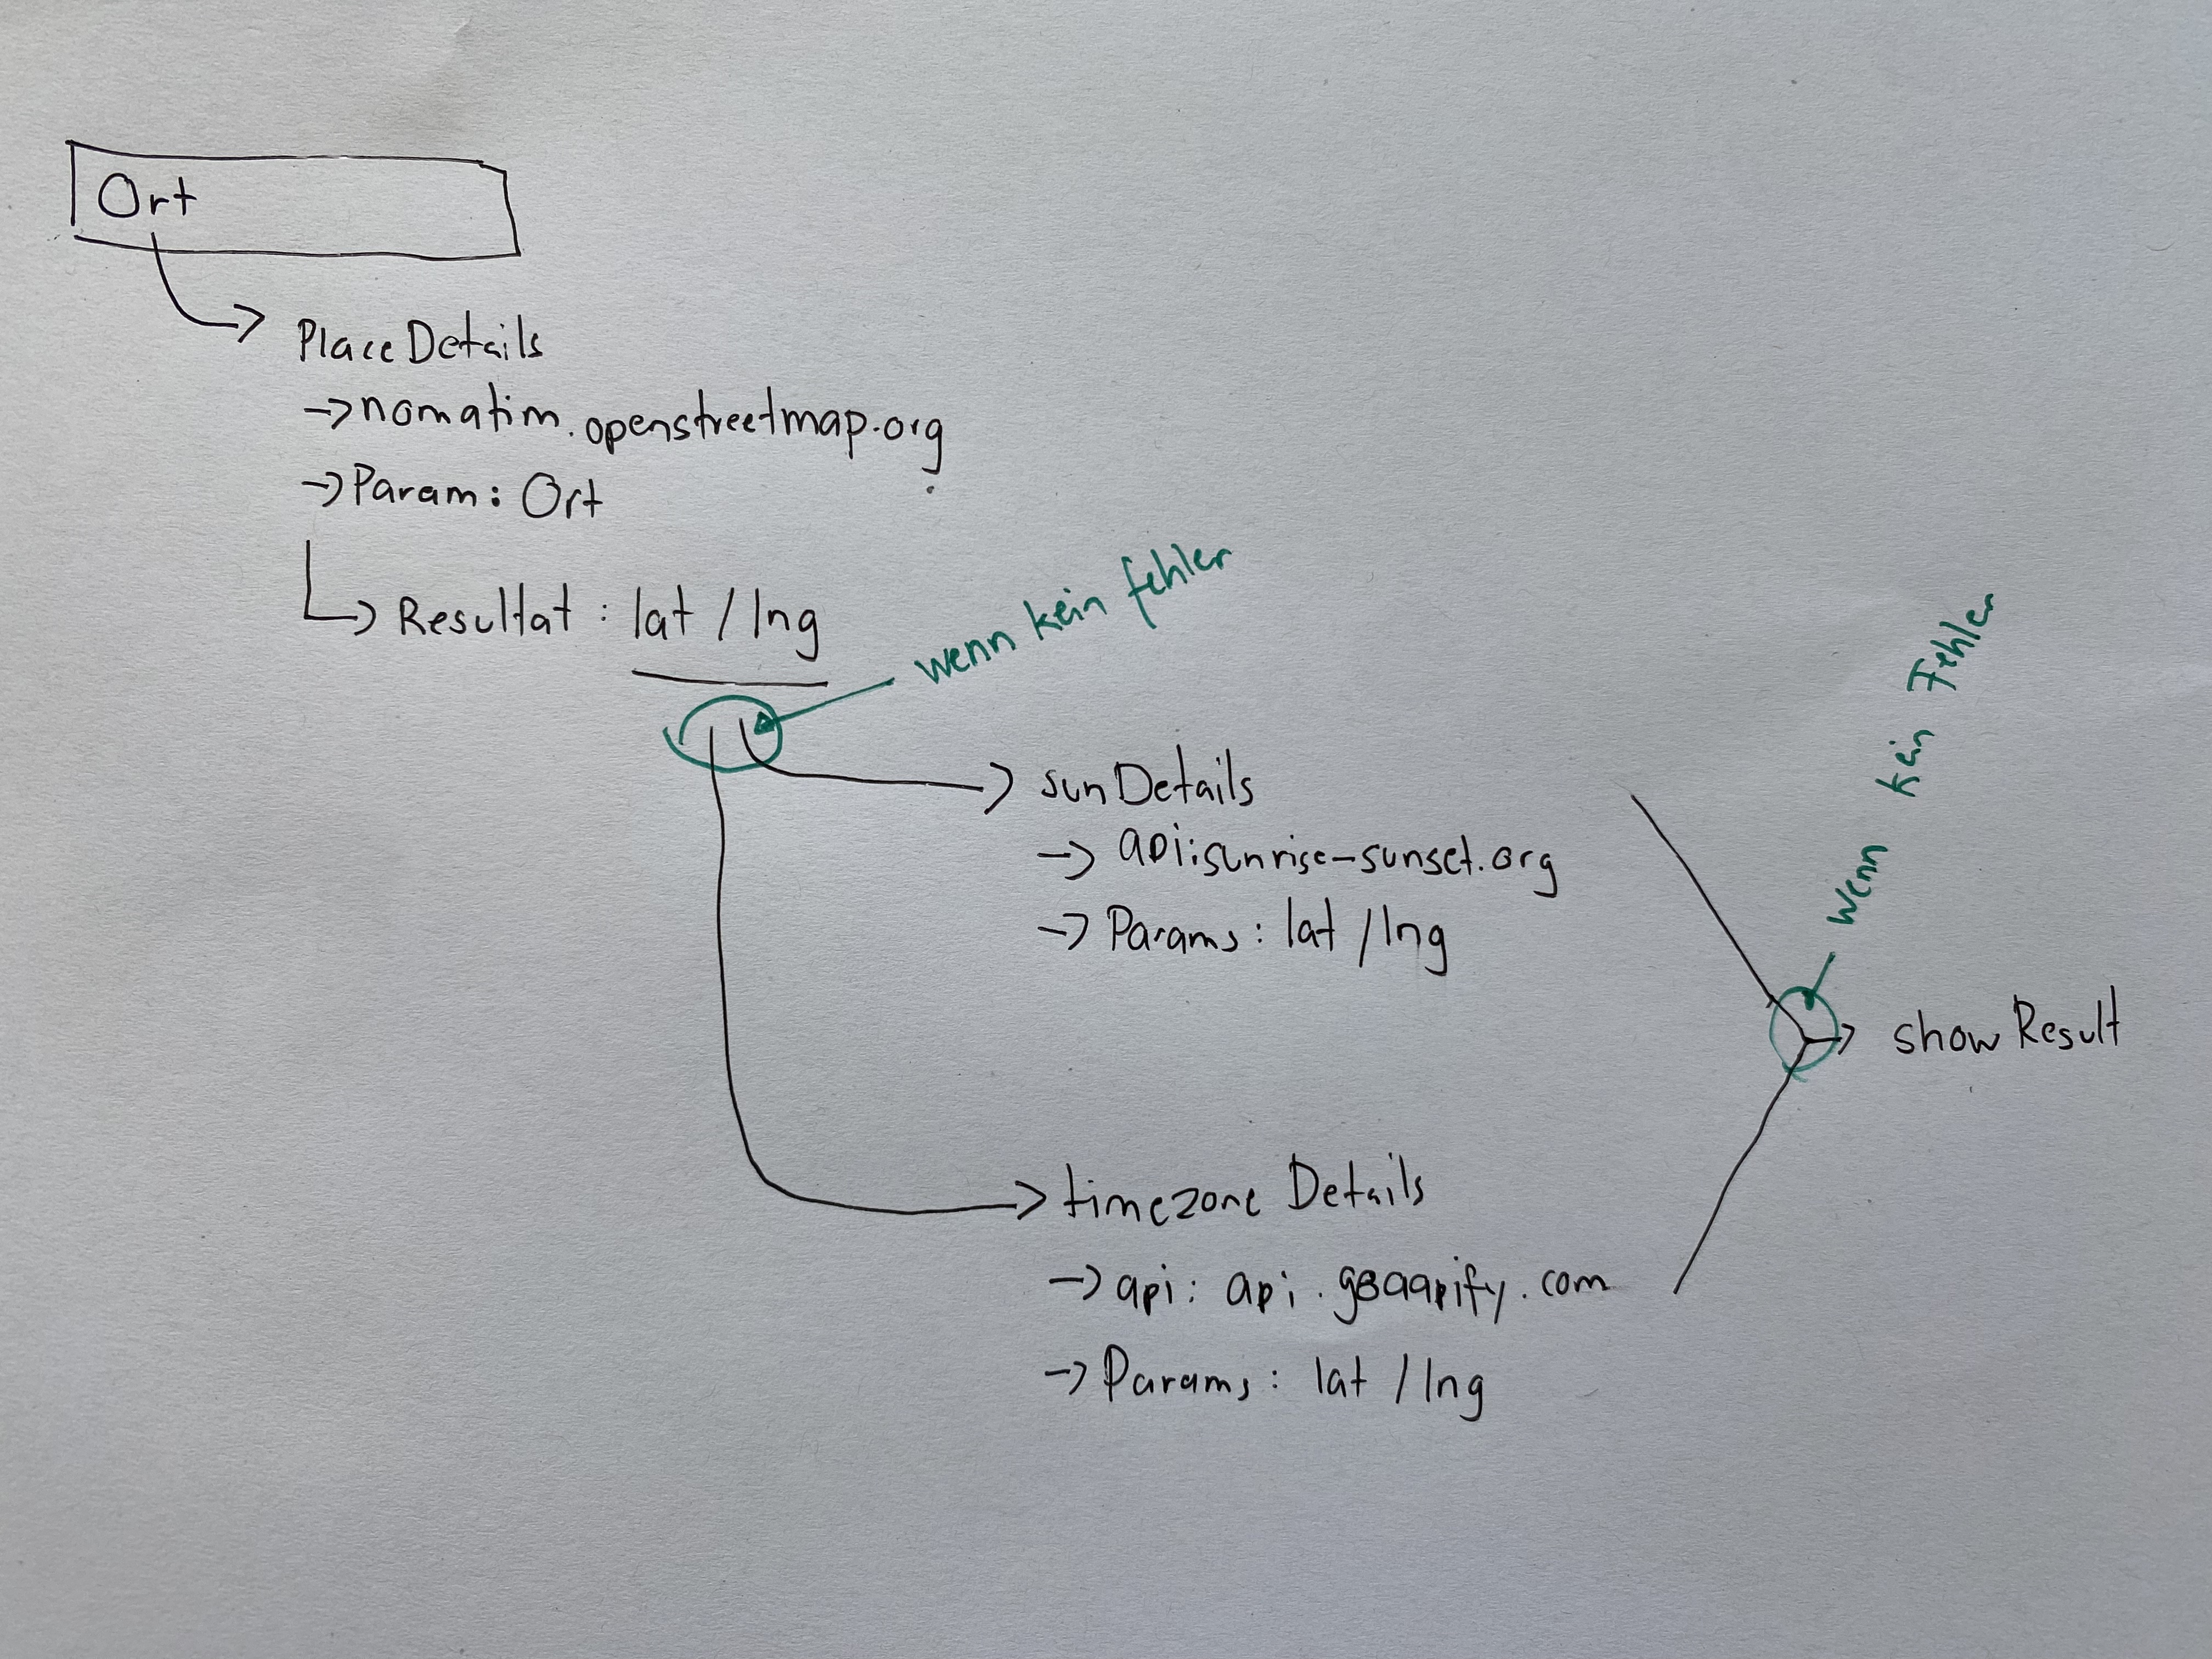 Ort
Place Details
→ nomatim.openstreetmap.org
→ Param: Ort
→ Resultat: lat / lng
wenn kein Fehler
→ sunDetails
→ api:sunrise-sunset.org
→ Params: lat / lng
→ timezone Details
→ api: api.geoapify.com
→ Params: lat / lng
wenn kein Fehler
→ show Result